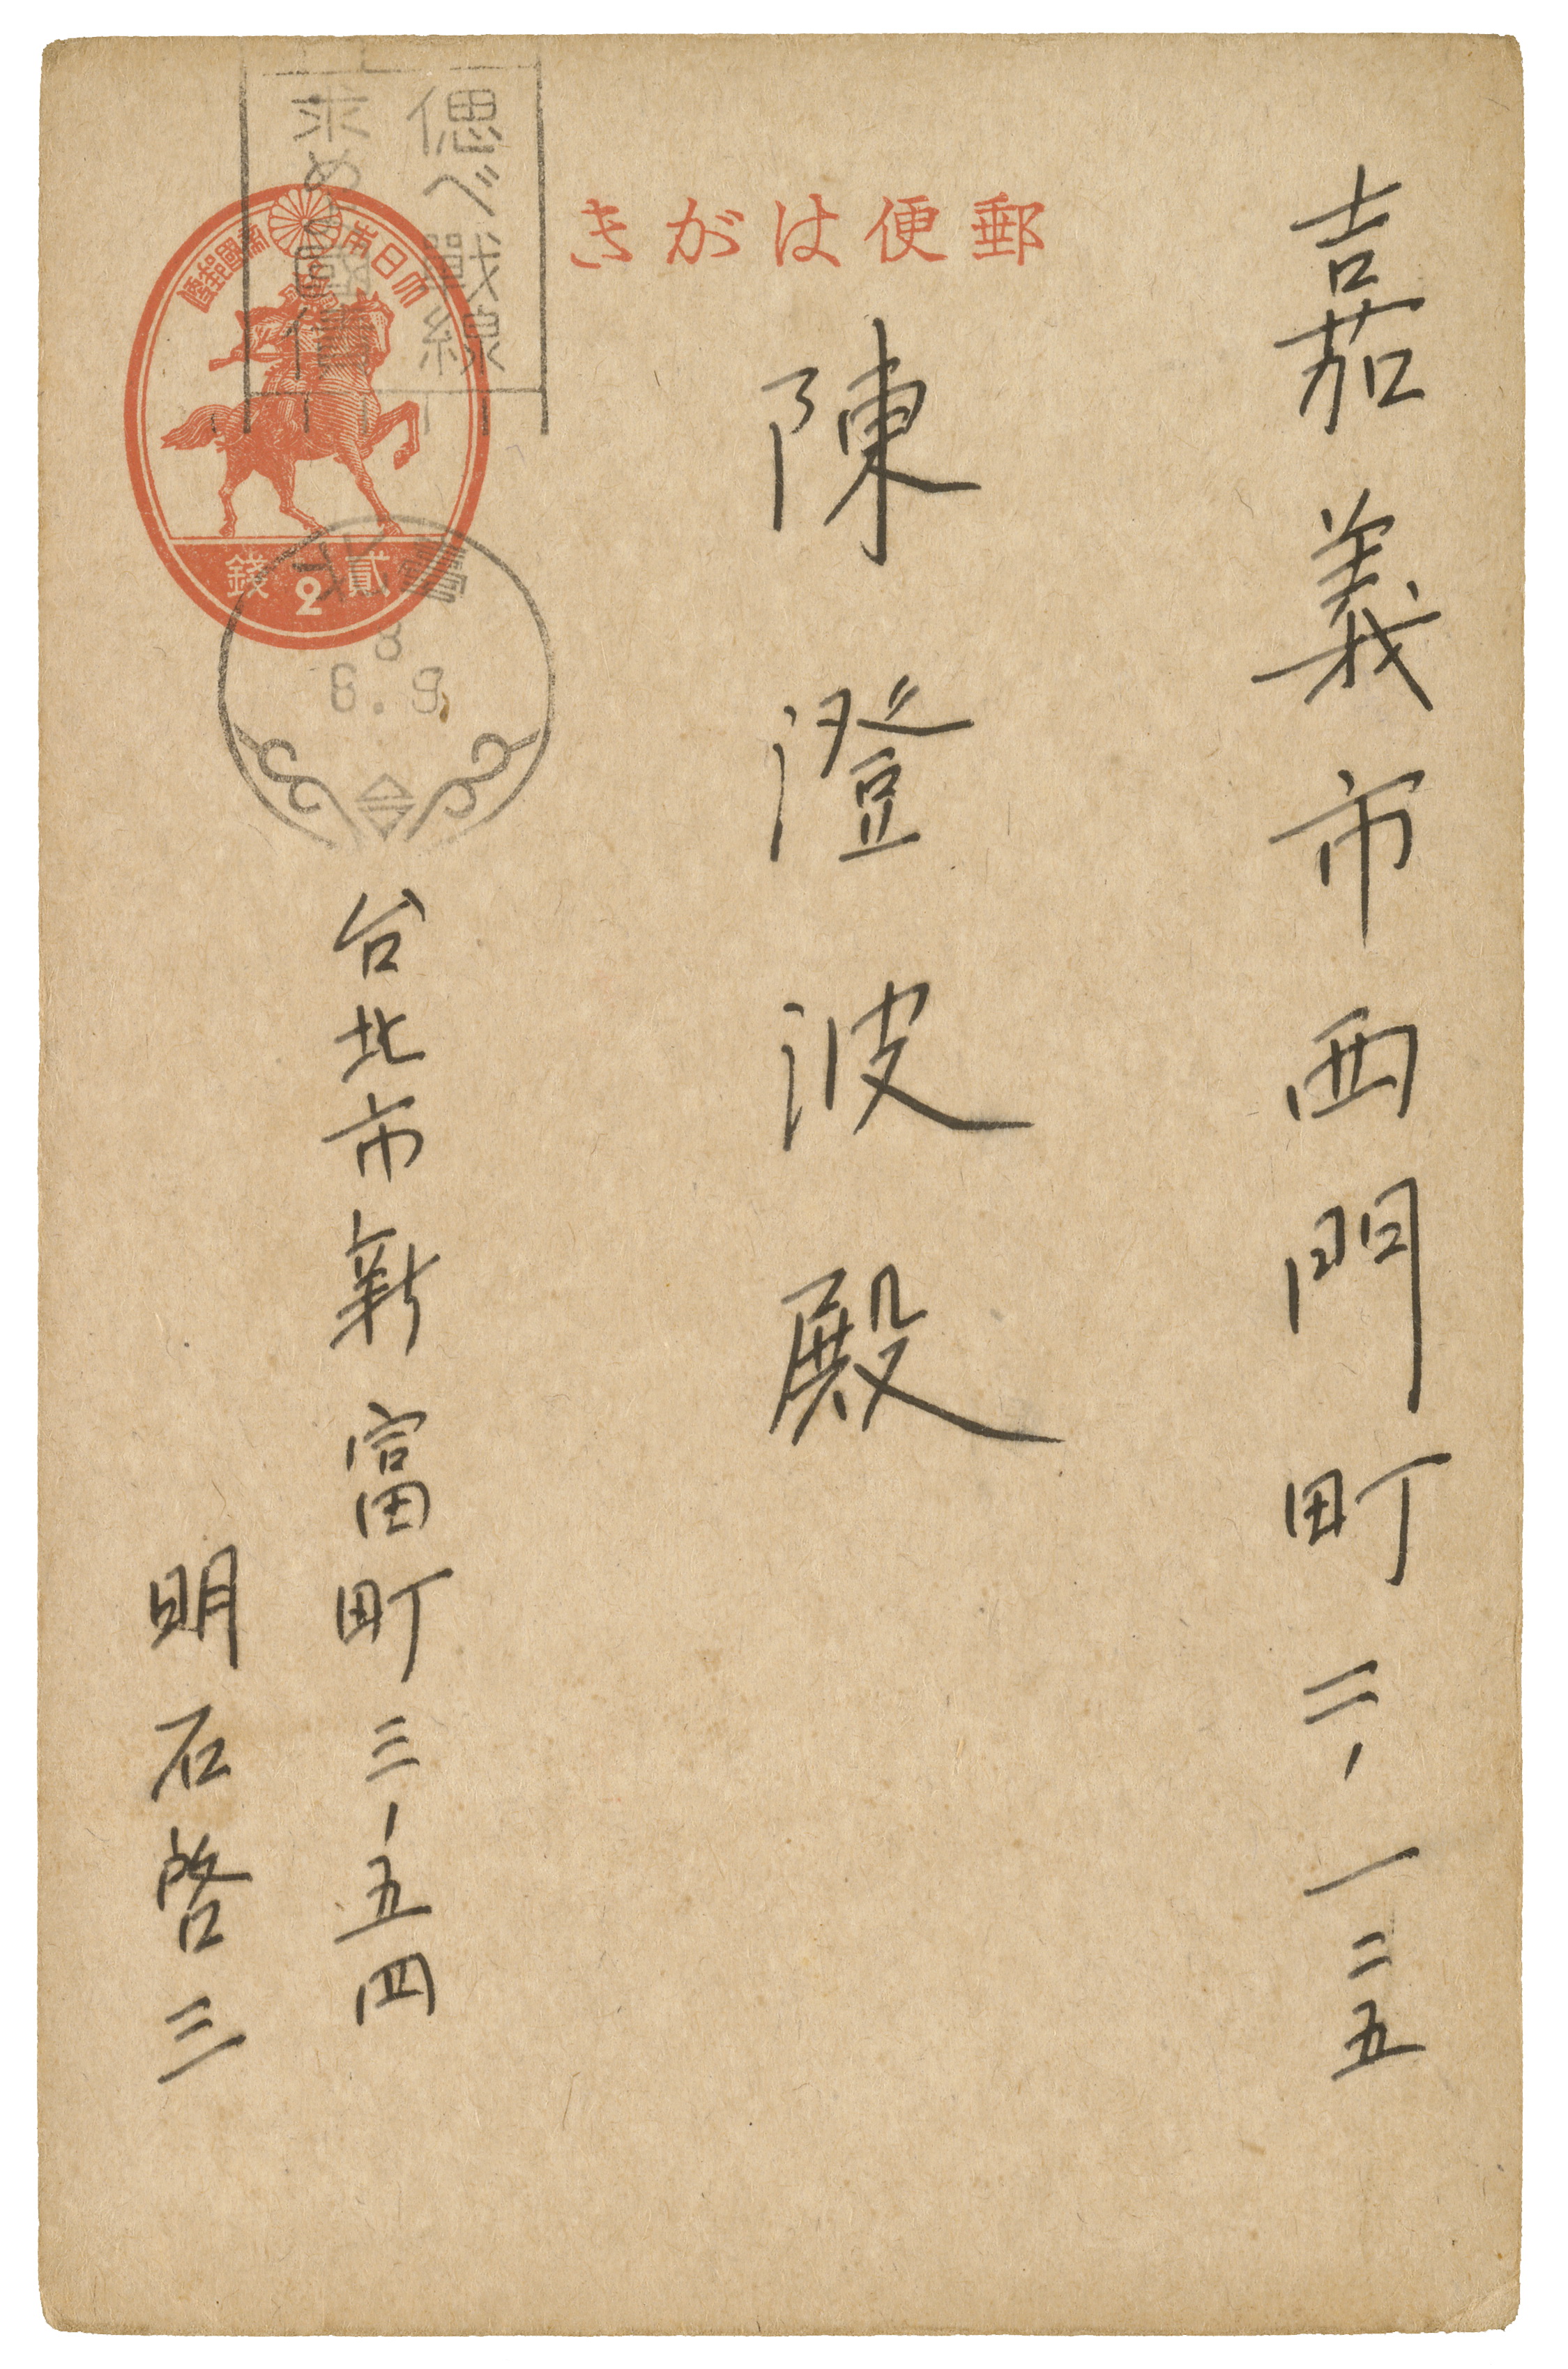 郵便はがき
嘉義市西門町二、一二五
陳澄波殿
偲べ戰線
求め國債
大日本帝國郵便
貳錢
2
8. 9
台北市新富町三、五四
明石啓三